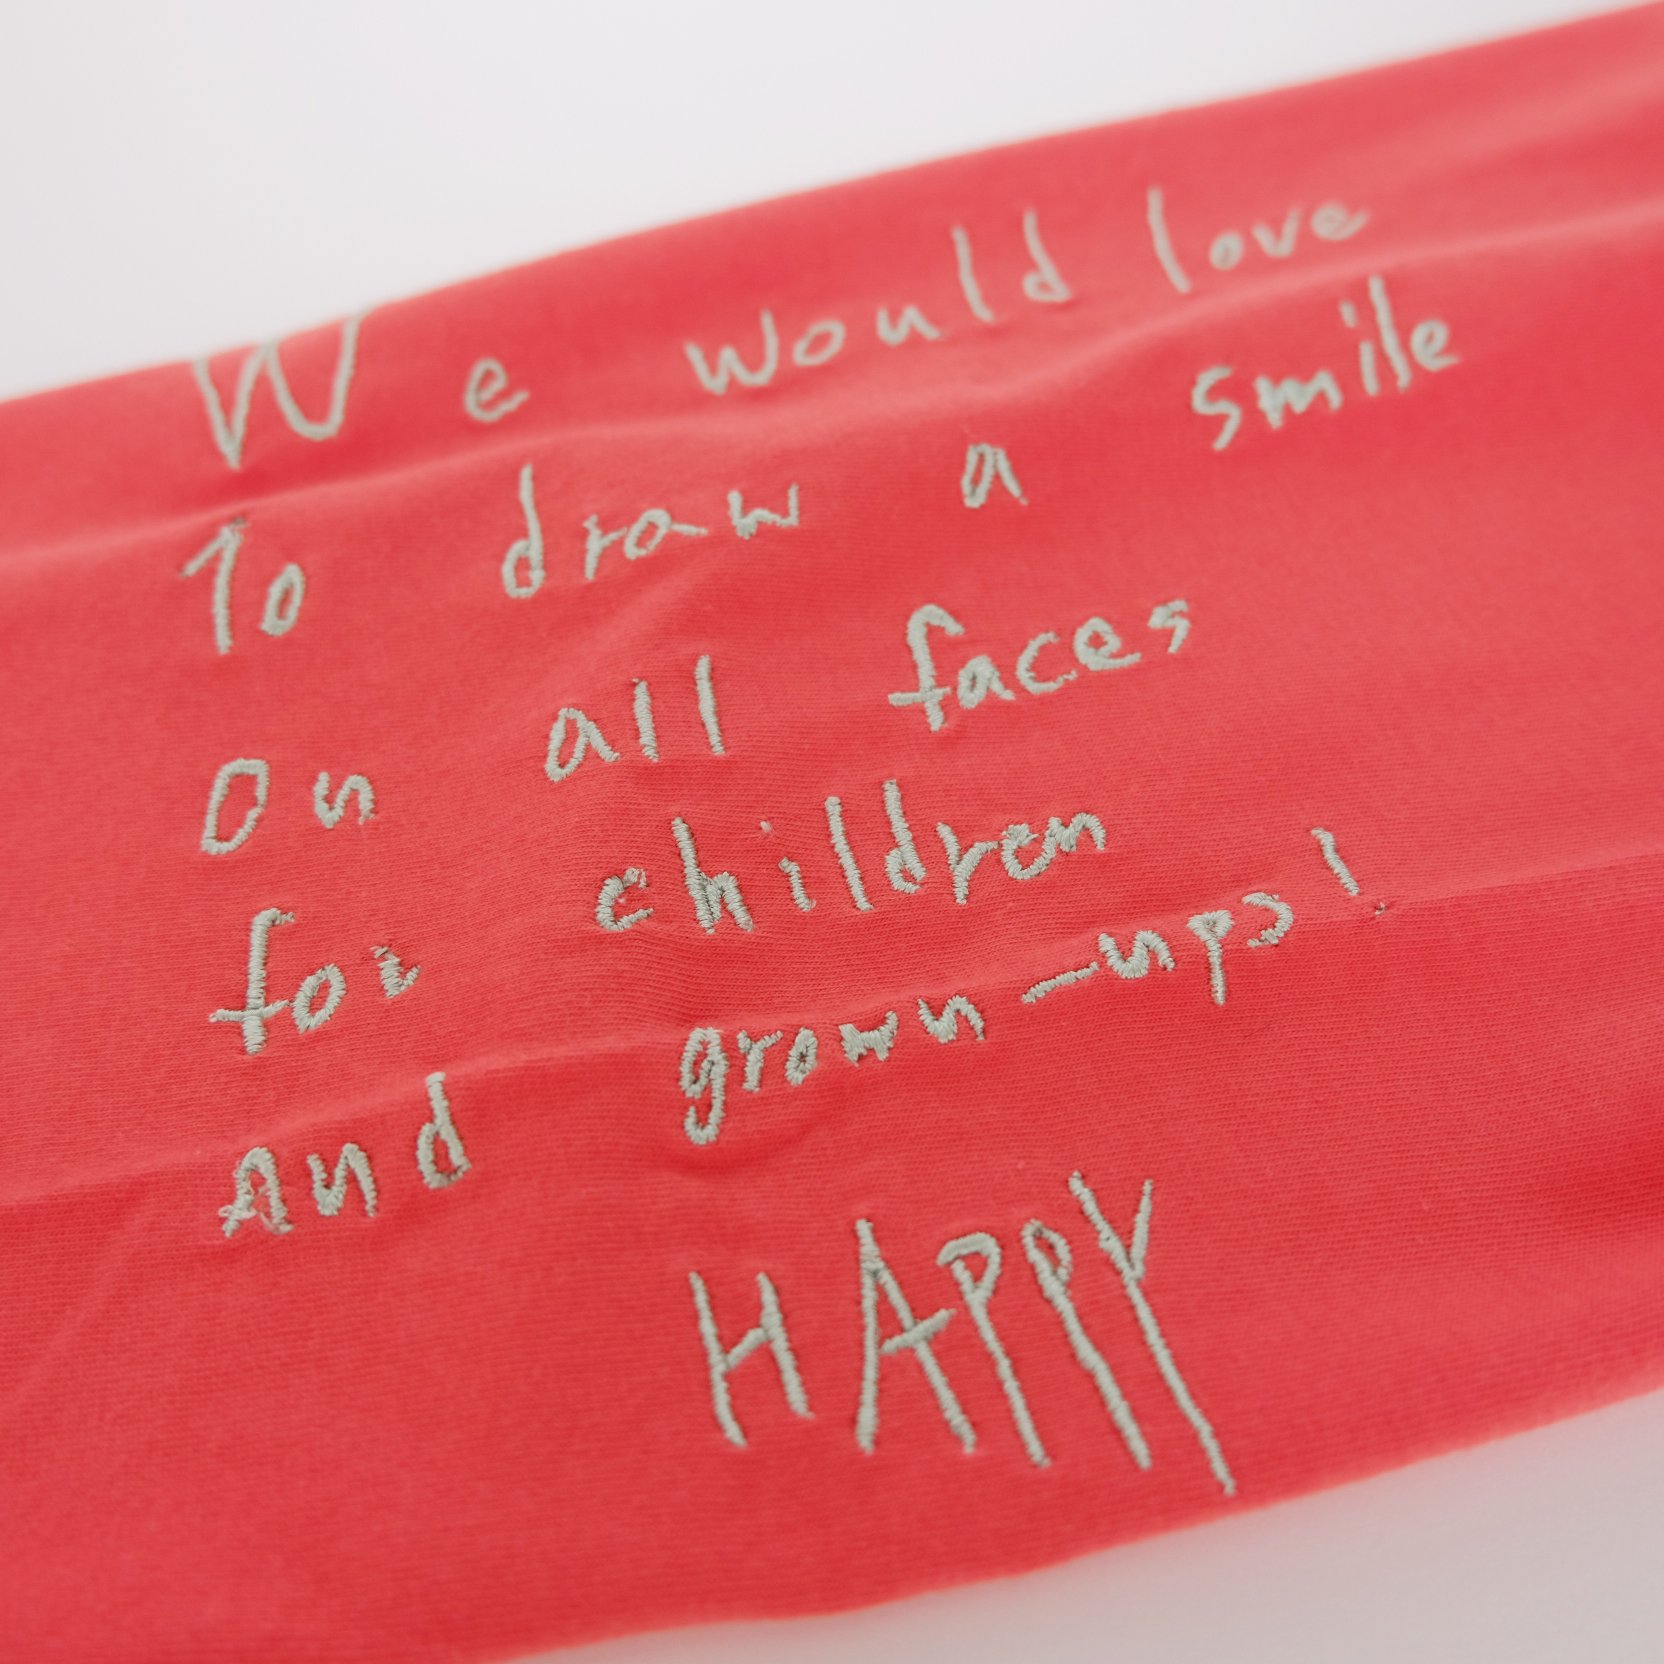 We would love
To draw a smile
On all faces
for children
And grown-ups!
HAPPY